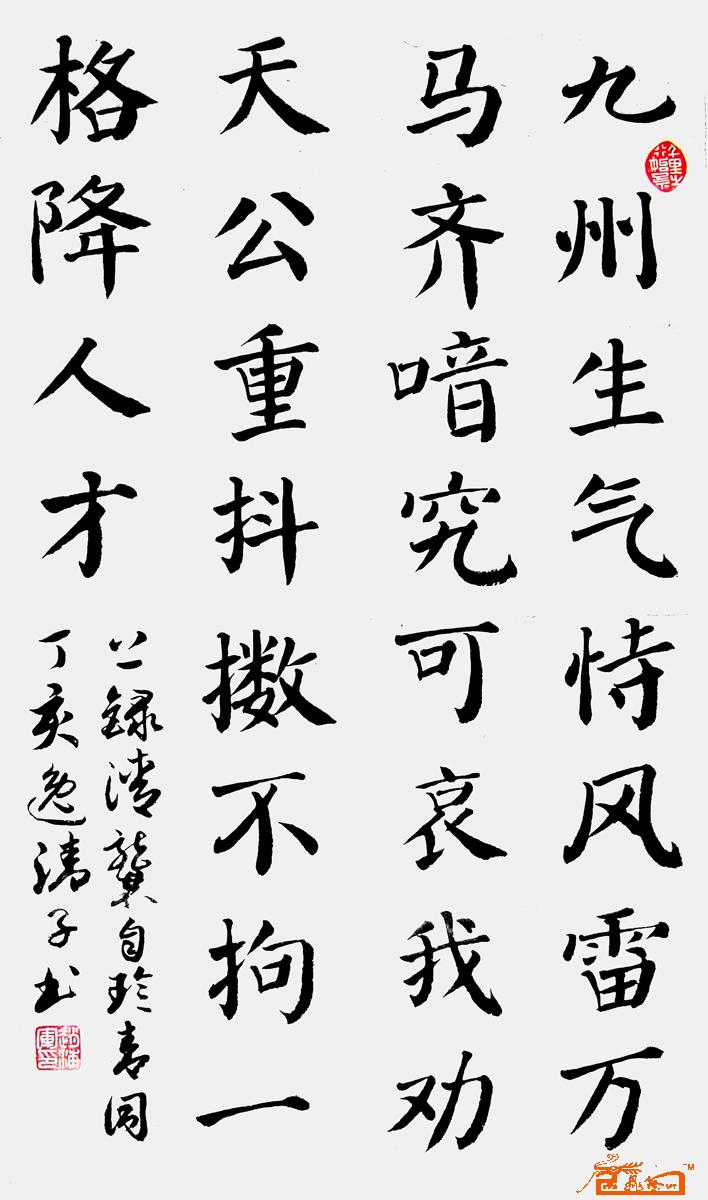 九州生气恃风雷万
马齐喑究可哀我劝
天公重抖擞不拘一
格降人才
上録清龚自珍
丁亥逸子书